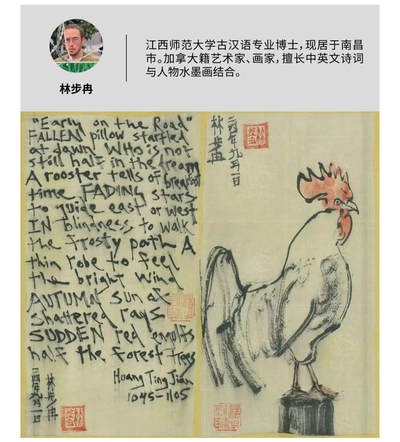 江西师范大学古汉语专业博士，现居于南昌
市。加拿大籍艺术家、画家，擅长中英文诗词
与人物水墨画结合。
林步冉
"Early on the Road"
FALLEN pillow startled
at dawn WHO is not
still half in the dream
A rooster tells of breakfast
time FADING stars
to guide east or west
IN blindness to walk
the frosty path A
thin robe to feel
the bright wind
AUTUMN sun of
shattered rays
SUDDEN red engulfs
half the forest trees
Huang Ting Jian
1045-1105
二四年九月一日
林步冉
二四年九月一日
林步冉